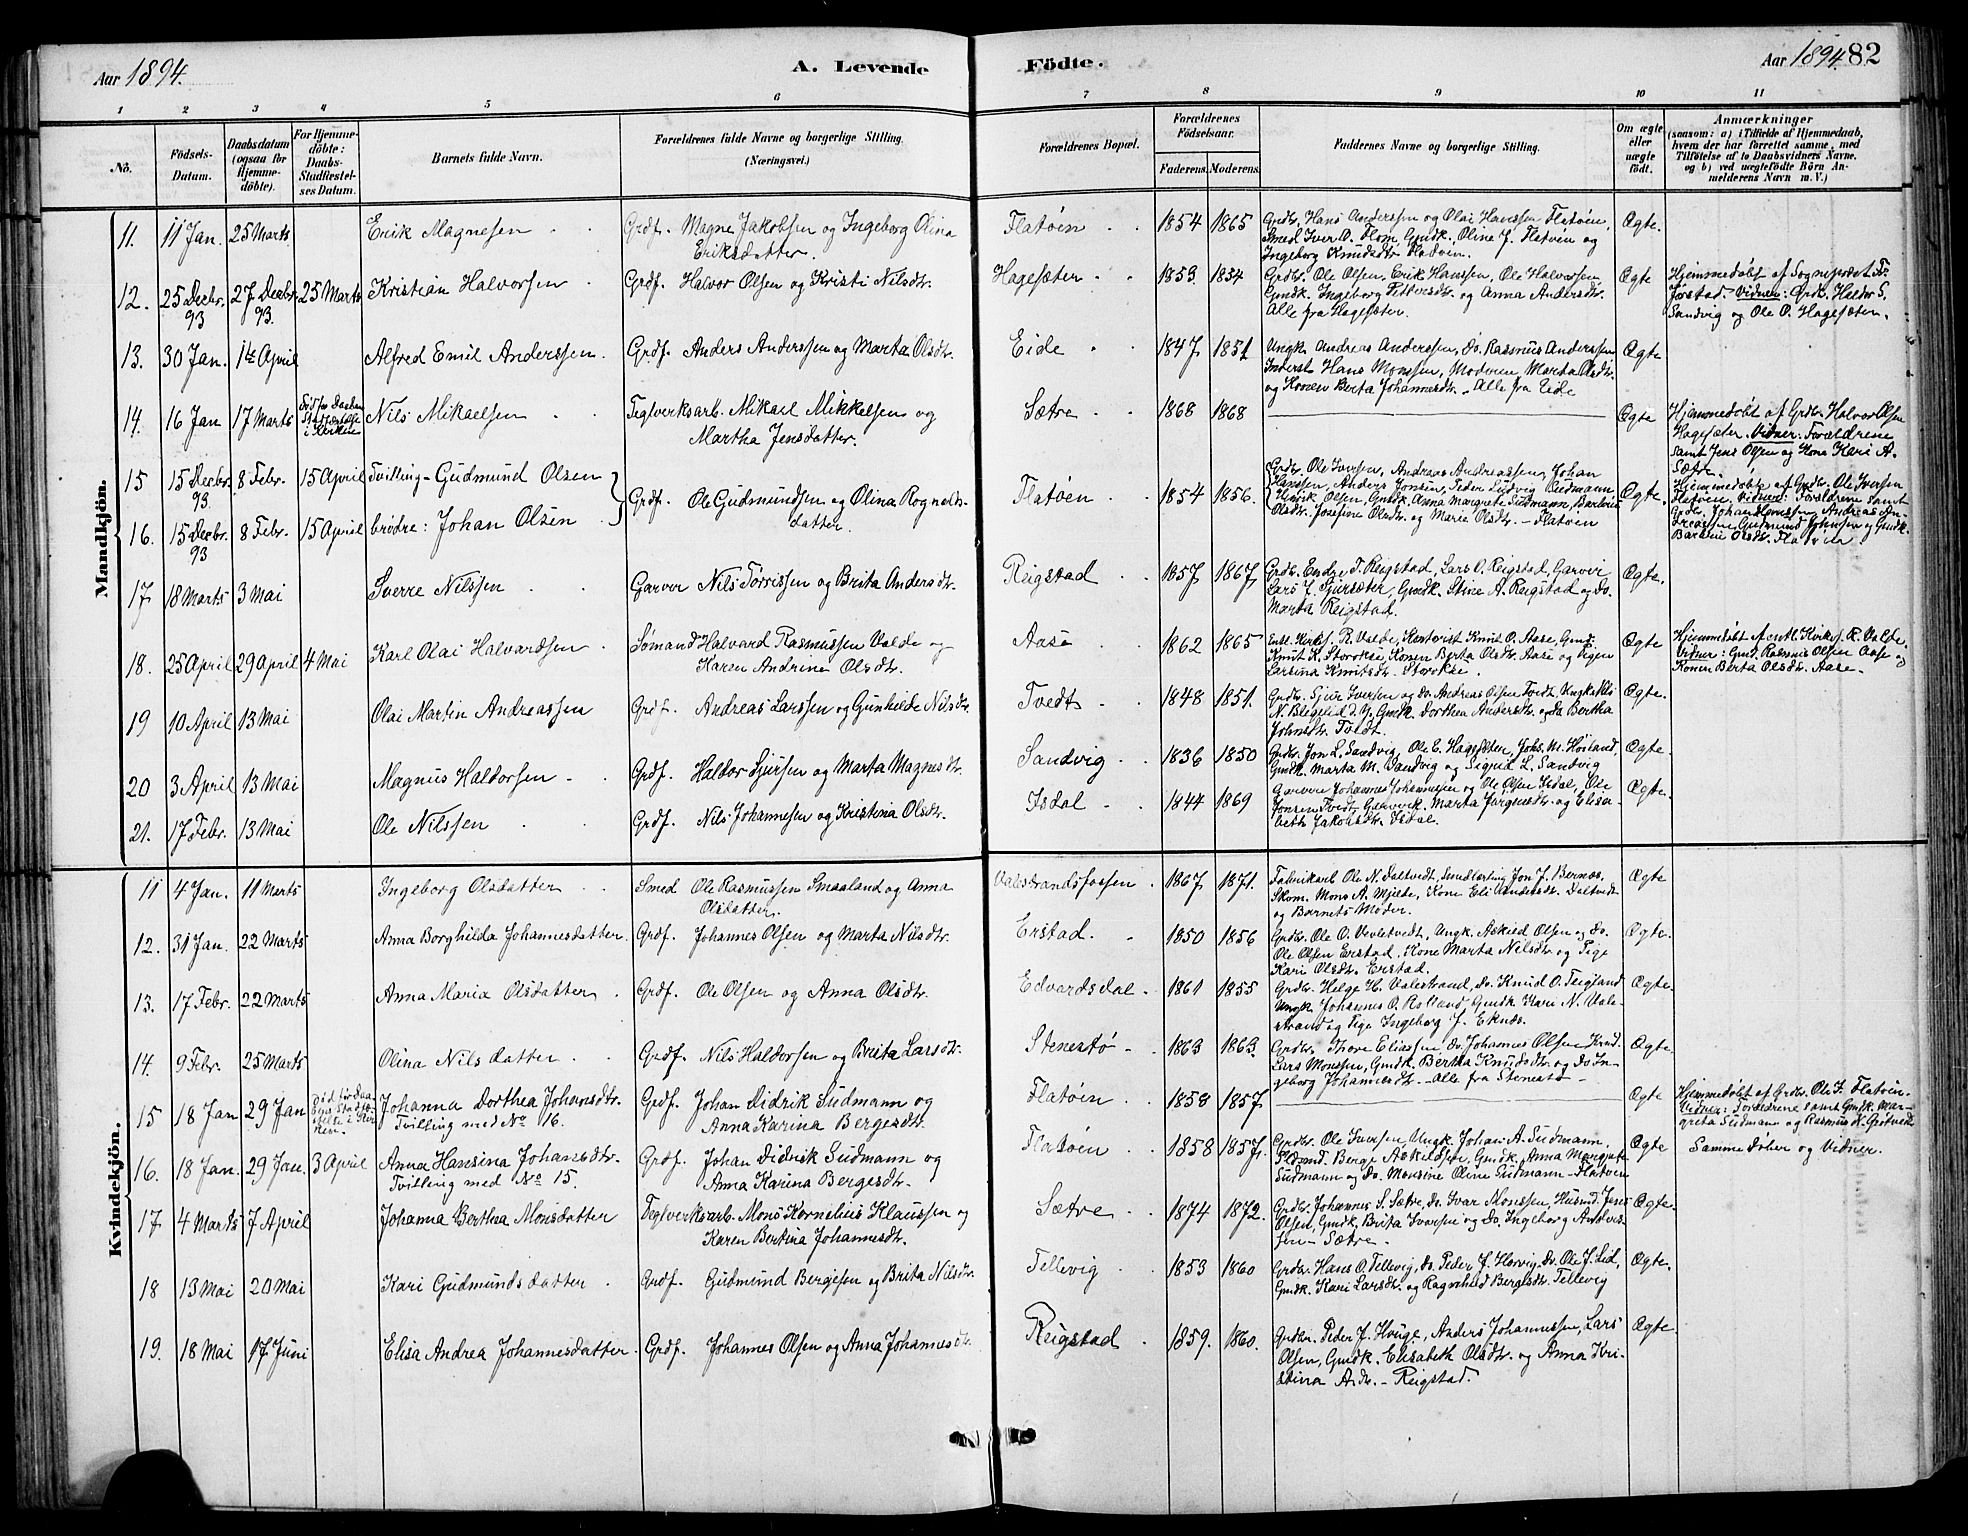 Aar 1894.
A. Levende
Födte.
Aar 1894.
82
1 2 3 4 5 6 7 8 9 10 11
No.
Födsels-
Datum.
Daabsdatum
(ogsaa for
Hjemme-
döbte).
For Hjemme-
döbte:
Daabs-
Stadfæstel-
ses Datum.
Barnets fulde Navn.
Forældrenes fulde Navne og borgerlige Stilling.
(Næringsvei.)
Forældrenes Bopæl.
Forældrenes
Födselsaar.
Faderens. Moderens.
Faddernes Navne og borgerlige Stilling.
Om ægte
eller
uægte
födt.
Anmærkninger
(saasom: a) i Tilfælde af Hjemmedaab,
hvem der har forrettet samme, med
Tilföielse af to Daabsvidners Navne.
og b) ved uægtefödte Börn An-
melderens Navn m. V.)
Mandkjön.
11. 11 Jan. 25 Marts Erik Magnesen Grdf. Magne Jakobsen og Ingeborg Olina
Eriksdatter. Flatöen 1854 1865 Grdbr. Hans Anderssen og Olai Hanssen Flatöen,
Smed Iver O. Flom, Gmdk. Oline J. Flatöen og
Ingeborg Knudsdtr. Flatöen. Ægte.
12. 25 Decbr. 93 27 Decbr. 93. 25 Marts Kristian Halvorsen Grdf. Halvor Olsen og Kristi Nilsdtr. Hagesæter 1853 1854 Grdbr. Ole Olsen, Erik Hanssen, Ole Halvorsen,
Gmdk. Ingeborg Tellevsdtr. og Anna Andersdtr.
Alle fra Hagesæter. Ægte Hjemmedöbt af Sogneprest Fr.
Jörstad. Vidner: Grdb. Haldor S.
Sandvig og Ole O. Hagesæter.
13. 30 Jan. 1ste April Alfred Emil Anderssen Grdf. Anders Anderssen og Marta Olsdtr. Eide 1847 1851 Ungk. Andreas Anderssen, do. Rasmus Anderssen
Inderst Hans Monssen, Moderen Marta Olsdtr.
og Konen Berta Johannesdtr. Alle fra Eide Ægte
14. 16 Jan 17 Marts Död før Daabens
Stadfæstelse
i Kirken Nils Mikaelsen Teglverksarb. Mikael Mikkelsen og
Martha Jensdatter. Sætre 1868 1868 Ægte Hjemmedöbt af Grdbr. Halvor Olsen
Hagesæter. Vidner: Forældrene
samt Jens Olsen og Kone Kari A.
Sætre.
15 15 Decbr. 93. 8 Febr. 15 April Tvilling- Gudmund Olsen
Grdf. Ole Gudmundsen og Olina Rognalds-
datter. Flatöen 1854 1856. Grdbr. Ole Iversen, Andreas Andreassen, Johan
Hanssen, Anders Jonsen, Peder Ludvig Sudmann
Henrik Olsen, Gmdk. Anna Margrete Sudmann, Barbra
Olsdtr. Josefine Olsdtr. og Marie Olsdtr. - Flatöen Ægte. Hjemmedöbt af Grdbr. Ole Iversen
Flatöen. Vidner: Forældrene samt
Grdbr. Johan Hanssen, Andreas An-
dreassen, Gudmund Johnsen og Gmdk.
Barbra Olsdtr. Flatöen.
16. 15 Decbr. 93 8 Febr. 15 April brödre: Johan Olsen
17 18 Marts 3 Mai Sverre Nilssen Garver Nils Törrissen og Brita Andersdtr. Reigstad 1857 1867 Grdbr. Endre T. Reigstad, Lars O. Reigstad, Garver
Lars J. Sjursæter, Gmdk. Stine A. Reigstad og do.
Marta Reigstad. Ægte.
18. 25 April 29 April 4 Mai Karl Olai Halvardsen Sömand Halvard Rasmussen Valde og
Karen Andrine Olsdtr. Aase 1862 1865 Entl. Kirkes. R. Valde, Korporist Knut O. Aase, Gmd.
Knut K. Storoksе, Konen Berta Olsdtr. Aase og Pigen
Larsina Knutsdtr. Storokse. Ægte Hjemmedöbt af entl. Kirkes. R. Valde.
Vidner: Gmd. Rasmus Olsen Aase og
Konen Berta Olsdtr. Aase.
19 10 April 13 Mai Olai Martin Andreassen Grdf. Andreas Larssen og Gunhilde Nilsdtr. Tvedt 1848 1851. Grdbr. Sjur Iversen og do. Andreas Olsen Tvedt, Ungk. Nils
N. Blegelid d. Y. Gmdk. Dorthea Andersdtr. og do Bertha
Johnsdtr. Tvedt. Ægte.
20 3 April 13 Mai Magnus Haldorsen Grdf. Haldor Sjursen og Marta Magnesdtr. Sandvig 1836 1850 Grdbr. Jon L. Sandvig, Ole E. Hagesæten, Johs. M. Höiland,
Gmdk. Marta M. Sandvig og Sigrid L. Sandvig Ægte
21. 17 Febr. 13 Mai Ole Nilssen Grdf. Nils Johannesen og Kristina Olsdtr. Isdal 1844 1869 Garver Johannes Johannesen og Ole Olsen Isdal, Ole
Jonsen Tvedt, Marta Jörgensdtr. og Elisa-
beth Jakobsdtr. Isdal. Ægte.
Kvindekjön.
11 4 Jan. 11 Marts Ingeborg Olsdatter Smed Ole Rasmussen Smaaland og Anna
Olsdatter. Valestrandsfossen 1867 1871. Fabrikarb Ole N. Daltvedt, Smedlærling Jon J. Bernæs,
Skom. Mons A. Mjelde, Kone Eli Andersdtr. Daltvedt
og Barnets Moder. Ægte
12. 31 Jan. 22 Marts Anna Borghilda Johannesdatter. Grdf. Johannes Olsen og Marta Nilsdtr. Erstad. 1850 1856 Grdbr. Ole O. Vevletvedt, Ungk. Askild Olsen og do.
Ole Olsen Erstad, Kone Marta Nilsdtr. og Pige
Kari Olsdtr. Erstad. Ægte.
13. 17 Febr. 22 Marts Anna Maria Olsdatter Grdf. Ole Olsen og Anna Olsdtr. Edvardsdal 1861 1855 Grdbr. Helge H. Valestrand, do. Knud O. Teigland
Ungk. Johannes O. Rolland Gmdk Kari N. Vale-
strand og Pige Ingeborg J. Eknæs. Ægte.
14. 9 Febr. 25 Marts Olina Nilsdatter Grdf. Nils Haldorsen og Brita Larsdtr. Stenestö 1863 1863. Grdbr. Thore Eliassen, do. Johannes Olsen, Kaar
Lars Monssen, Gmdk Bertha Knudsdtr og do In-
geborg Johannesdtr. - Alle fra Stenestö - Ægte.
15 18 Jan 29 Jan Död för Daa-
bens Stadf-
estelse i Kir-
ken. Johanna Dorthea Johansdtr.
Tvilling med No 16. Grdf. Johan Didrik Sudmann og
Anna Karina Bergesdtr. Flatöen 1858 1857 Ægte Hjemmedöbt af Grdbr. Ole I. Flatöen.
Vidner: Forældrene samt Gmdk. Mar-
greta Sudmann og Rasmus K. Grötvedt
16. 18 Jan. 29 Jan. 3 April Anna Hansina Johansdtr.
Tvilling med No 15. Grdf. Johan Didrik Sudmann og
Anna Karina Bergesdtr. Flatöen 1858 1857. Grdbr. Ole Iversen, Ungk. Johan A. Sudmann,
Berge Askildsen, Gmdk. Anna Margrete
Sudmann og do. Monsine Oline Sudmann - Flatöen Ægte Samme döber og Vidner.
17 4 Marts 7 April Johanna Berthea Monsdatter Teglverksarb. Mons Kornelius Klaussen og
Karen Bertina Johannesdtr. Sætre 1874 1872. Grdbr. Johannes S. Sætre, do. Ivar Monssen, Husmd. Jens
Olsen, Gmdk. Brita Iversen og do. Ingeborg Anders-
sen - Sætre. Ægte.
18 13 Mai 20 Mai Kari Gudmundsdatter Grdf. Gudmund Bergesen og Brita Nilsdtr. Tellevig 1853 1860 Grdbr. Hans O. Tellevig, do. Peder J. Horvig, do. Ole J. Lid,
Gmdk. Kari Larsdtr. og Ragnhild Bergesdtr. Tellevig Ægte.
19. 18 Mai 17 Juni Elisa Andrea Johannesdatter Grdf. Johannes Olsen og Anna Johannesdtr. Reigstad 1859. 1860. Grdbr. Peder J. Hauge, Anders Johannessen, Lars
Olsen, Gmdk. Elisabeth Olsdtr. og Anna Kri-
stina Adr. - Reigstad. Ægte.